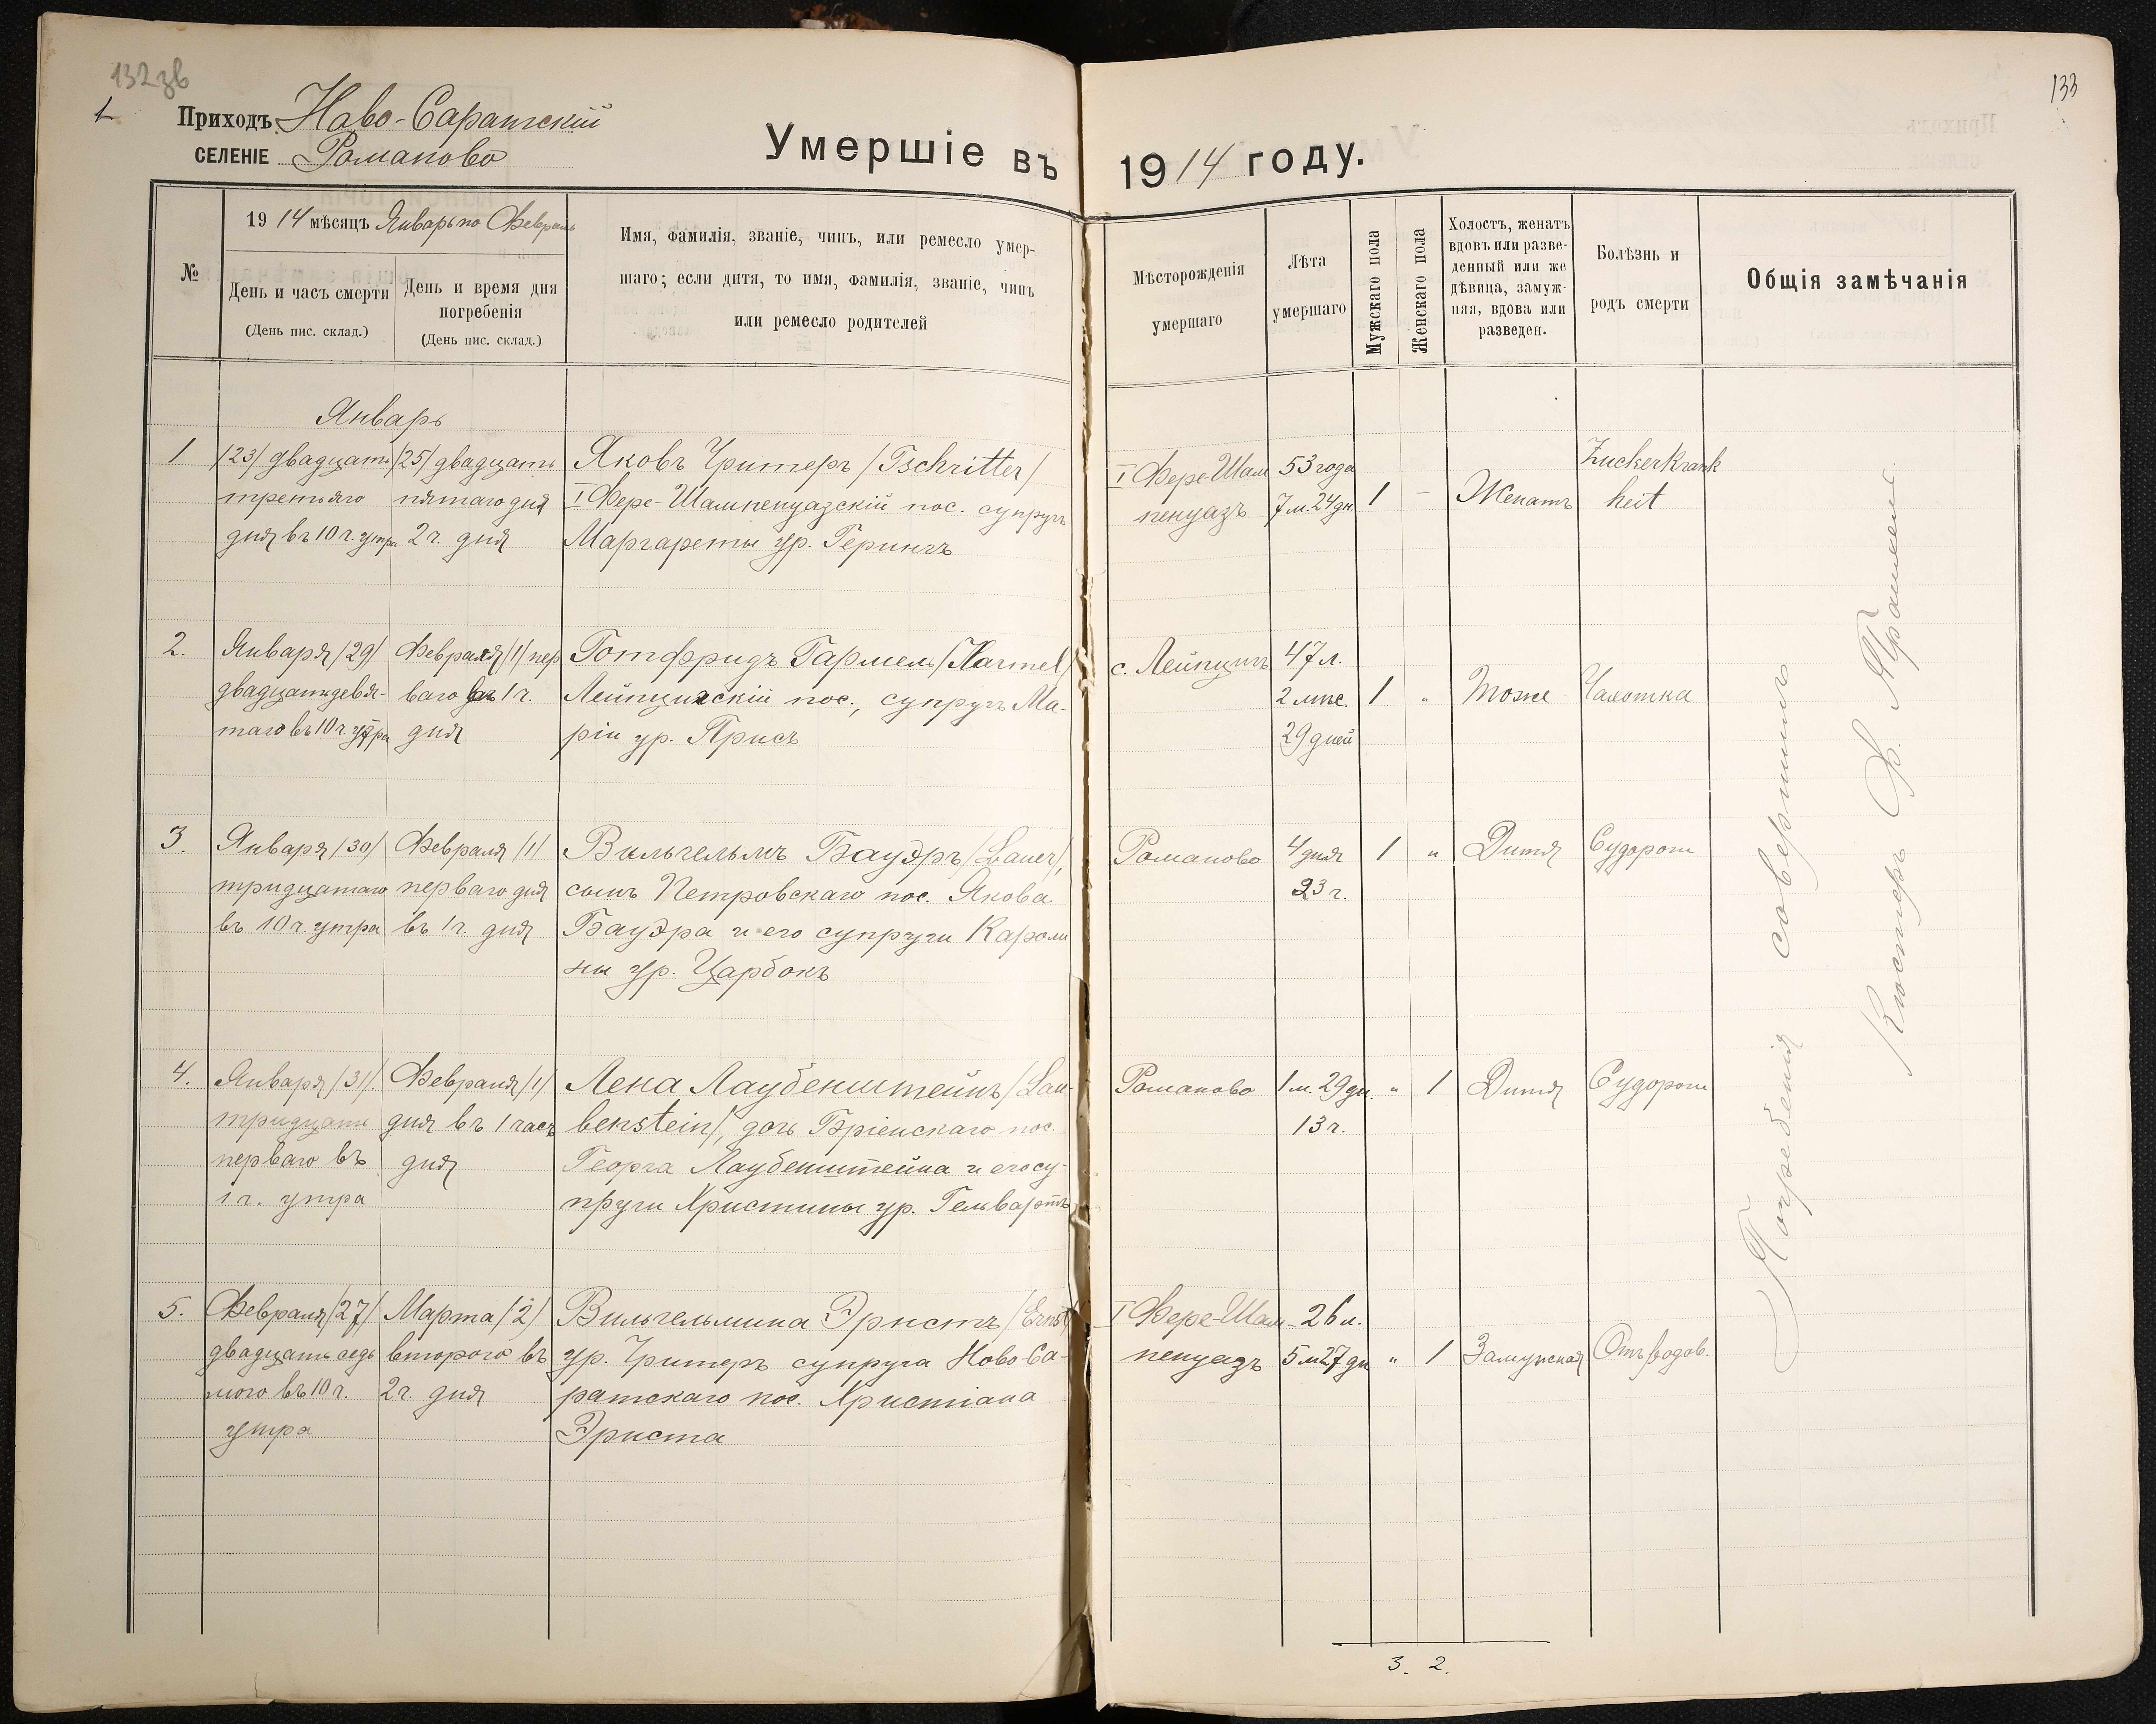 132 зв
1
133
Приходъ Ново-Саратскій
СЕЛЕНІЕ Романово
Умершіе въ 1914 году.
№
1914 мѣсяцъ Январь по Февраль
День и часъ смерти
(День пис. склад.)
День и время дня
погребенія
(День пис. склад.)
Имя, фамилія, званіе, чинъ, или ремесло умер-
шаго; если дитя, то имя, фамилія, званіе, чинъ
или ремесло родителей
Мѣсторожденія
умершаго
Лѣта
умершаго
Мужскаго пола
Женскаго пола
Холостъ, женатъ
вдовъ или разве-
денный или же
дѣвица, замуж-
няя, вдова или
разведен.
Болѣзнь и
родъ смерти
Общія замѣчанія
Январь
1
/23/ двадцать
третьяго
дня въ 10 ч. утра
/25/ двадцать
пятаго дня
2 ч. дня
Яковъ Чритеръ /Tschritter/
I Фере-Шампенуазскій пос. супругъ
Маргареты ур. Герингъ
I Фере-Шам
пенуазъ
53 года
7 м. 24 дн.
1
-
Женатъ
Zuckerkrank
heit
2.
Января /29/
двадцать девя-
таго въ 10 ч. утра
Февраля /1/ пер
ваго въ 1 ч.
дня
Готфридъ Гармель /Harmel/
Лейпцигскій пос., супругъ Ма-
ріи ур. Присъ
с. Лейпцигъ
47 л.
2 мѣс.
29 дней
1
"
Тоже
Чахотка
3.
Января /30/
тридцатаго
въ 10 ч. утра
Февраля /1/
перваго дня
въ 1 ч. дня
Вильгельмъ Бауэръ /Bauer/,
сынъ Петровскаго пос. Якова
Бауэра и его супруги Кароли
ны ур. Царбокъ
Романово
4 дня
23 ч.
1
"
Дитя
Судороги
4.
Января /31/.
тридцать
перваго въ
1 ч. утра
Февраля /1/
дня въ 1 часъ
дня
Лена Лаубенштейнъ /Lau-
benstein/, дочь Бріенскаго пос.
Георга Лаубенштейна и его су-
пруги Христины ур. Гельвартъ
Романово
1 м. 29 дн.
13 ч.
"
1
Дитя
Судороги
5.
Февраля /27/
двадцать седь
мого въ 10 ч.
утра
Марта /2/
второго въ
2 ч. дня
Вильгельмина Эрнстъ /Ernst/
ур. Чритеръ супруга Ново-Са-
ратскаго пос. Христіана
Эрнста
I Фере-Шам-
пенуазъ
26 л.
5 м 27 дн
"
1
Замужняя
Отъ родов.
Погребенія совершилъ
Кюстеръ Ф.
3. 2.